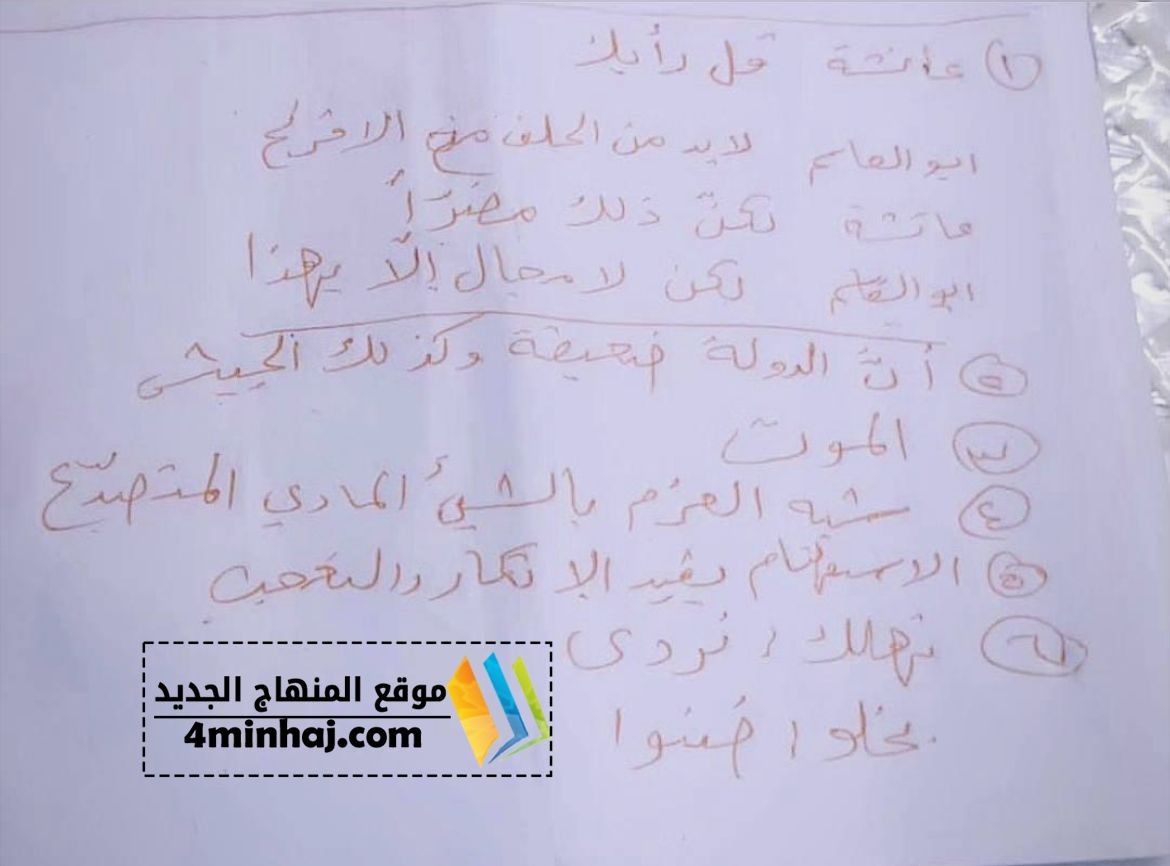 ١ عائشة قل رأيك
ابو القاسم لابد من الحلف مع الافرنج
عائشة لكنّ ذلك مضرّاً
ابو القاسم لكن لا مجال إلّا بهذا
٢ أنَّ الدولة ضعيفة وكذلك الجيش
٣ الموت
٤ شبه العزم بالشيئ المادي المتصدّع
٥ الاستفهام يفيد الإنكار والتعجب
٦ تهلك / تردى
بخلوا / ضنوا
موقع المنهاج الجديد
4minhaj.com